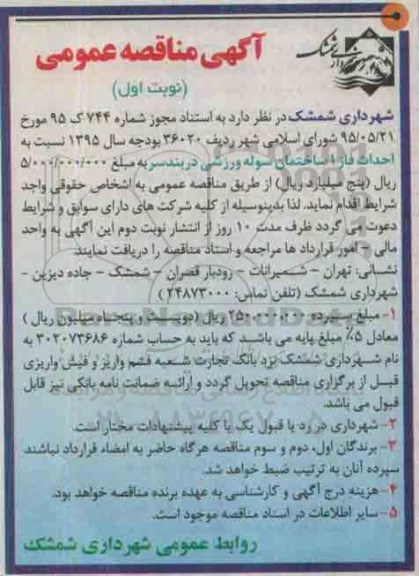 آگهی مناقصه عمومی
(نوبت اول)
شهرداری شمشک در نظر دارد به استناد مجوز شماره ۷۴۴ ک ۹۵ مورخ
۹۵/۰۵/۲۱ شورای اسلامی شهر ردیف ۳۶۰۲۰ بودجه سال ۱۳۹۵ نسبت به
احداث فاز ۱ ساختمان سوله ورزشی دربندسر به مبلغ ۵/۰۰۰/۰۰۰/۰۰۰
ریال (پنج میلیارد ریال) از طریق مناقصه عمومی به اشخاص حقوقی واجد
شرایط اقدام نماید. لذا بدینوسیله از کلیه شرکت های دارای سوابق و شرایط
دعوت می گردد ظرف مدت ۱۰ روز از انتشار نوبت دوم این آگهی به واحد
مالی - امور قرارداد ها مراجعه و اسناد مناقصه را دریافت نمایند.
نشانی: تهران - شمیرانات - رودبار قصران - شمشک - جاده دیزین -
شهرداری شمشک (تلفن تماس: ۲۴۸۷۳۰۰۰)
۱- مبلغ سپرده ۲۵۰/۰۰۰/۰۰۰ ریال (دویست و پنجاه میلیون ریال)
معادل ۵٪ مبلغ پایه می باشد که باید به حساب شماره ۳۰۲۰۷۳۶۸۶ به
نام شهرداری شمشک نزد بانک تجارت شعبه فشم واریز و فیش واریزی
قبل از برگزاری مناقصه تحویل گردد و ارائه ضمانت نامه بانکی نیز قابل
قبول می باشد.
۲- شهرداری در رد یا قبول یک یا کلیه پیشنهادات مختار است.
۳- برندگان اول، دوم و سوم مناقصه هرگاه حاضر به امضاء قرارداد نباشند
سپرده آنان به ترتیب ضبط خواهد شد.
۴- هزینه درج آگهی و کارشناسی به عهده برنده مناقصه خواهد بود.
۵- سایر اطلاعات در اسناد مناقصه موجود است.
روابط عمومی شهرداری شمشک